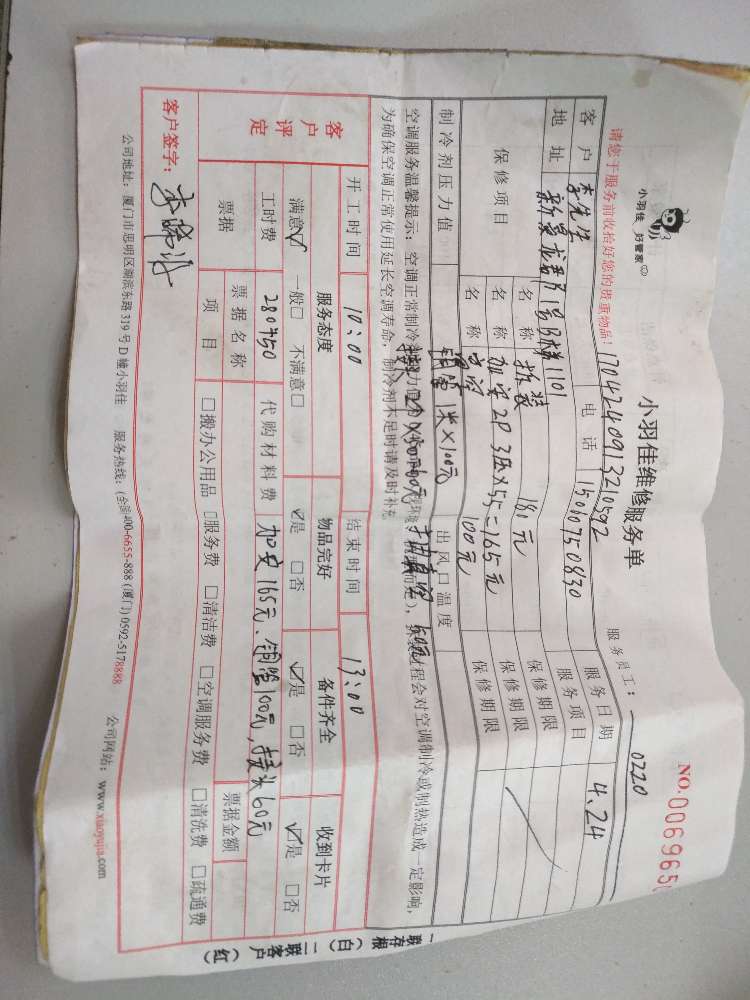 小羽佳 好管家
小羽佳维修服务单
NO.006965
请您于服务前收拾好您的贵重物品!
1704240913210592
服务员工: 0220
客户 李先生 电话 15000750830 服务日期 4.24
地址 新景龙郡1号B梯1101 服务项目
保修项目 名称 拆装 180元 保修期限
名称 加安2P 3压×55=165元 保修期限
名称 100元 保修期限
制冷剂压力值 铜管 1米×100元 出风口温度
空调服务温馨提示:空调正常制冷 会对空调制冷或制热造成一定影响,
为确保空调正常使用延长空调寿命,制冷剂不足时请及时补充
开工时间 10:00 结束时间 13:00
客户评定 服务态度 物品完好 备件齐全 收到卡片
满意☑ 一般□ 不满意□ ☑是 □否 ☑是 □否 ☑是 □否
工时费 280+50 代购材料费 加安165元、铜管100元,接头60元
票据 票据名称 票据金额
项目 □搬办公用品 □服务费 □清洁费 □空调服务费 □清洗费 □疏通费
客户签字:
公司地址:厦门市思明区湖滨东路319号D幢小羽佳 服务热线:(全国)400-6655-888 (厦门) 0592-5178888 公司网站:www.xiaoyujia.com
一联存根(白) 二联客户(红)